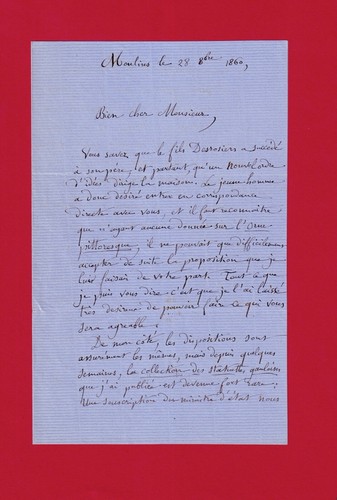 Moulins le 28 8bre 1860,
Bien cher Monsieur,
Vous savez que le fils Desrosiers a succédé
à son père, et partant, qu'un nouvel ordre
d'idées dirige la maison. Le jeune homme
a donc désiré entrer en correspondance
directe avec vous, et il faut reconnaître
que n'ayant aucune donnée sur l'Orne
pittoresque, il ne pouvait que difficilement
accepter de suite la proposition que je
lui faisais de votre part. Tout ce que
je puis vous dire c'est que je l'ai laissé
très désireux de pouvoir faire ce qui vous
sera agréable ;
De mon côté, les dispositions sont
assurément les mêmes, mais depuis quelques
semaines, la collection des statuettes gauloises
que j'ai publiée est devenue fort rare :
Une souscription du ministre d'état nous